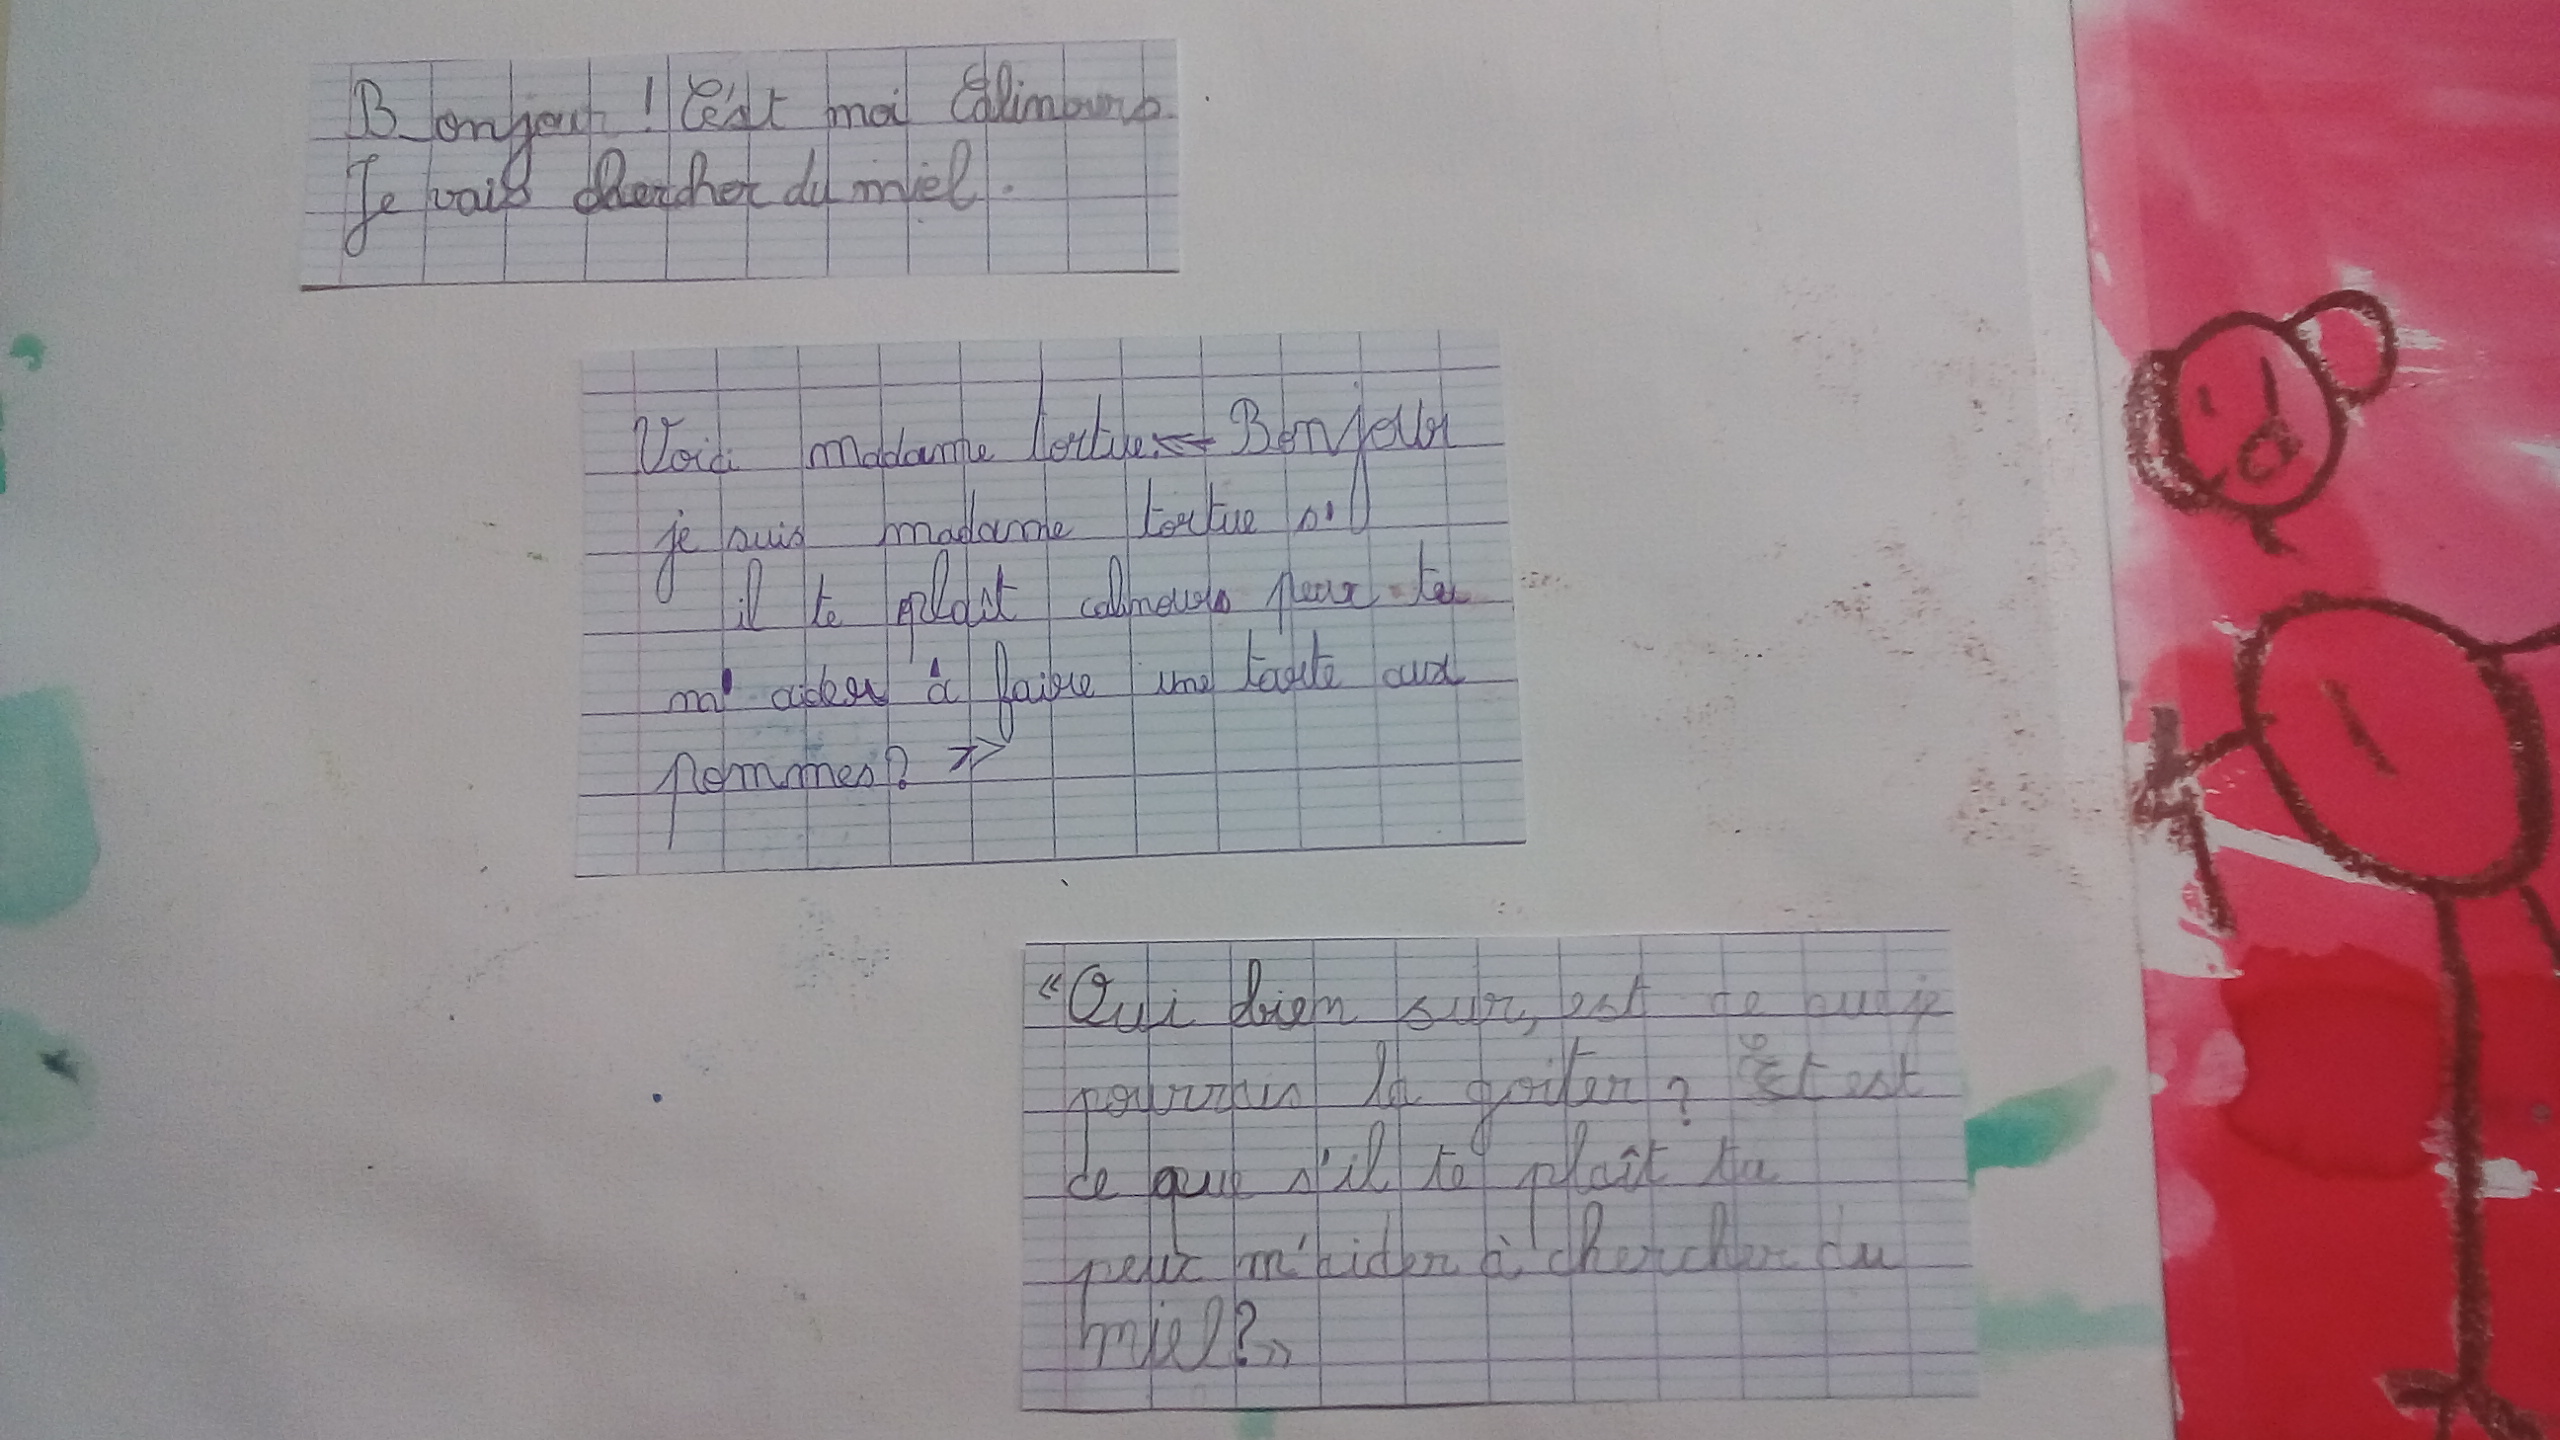 Bonjour ! C'est moi Calinours.
Je vais chercher du miel.
Voici madame tortue « Bonjour
je suis madame tortue s'il
il te plait calinours peux tu
m' aider à faire une tarte aux
pommes? »
"Oui bien sur, est ce que je
pourrais la goiter ? Et est
ce que s'il te plaît tu
peux m'aider à chercher du
miel?»